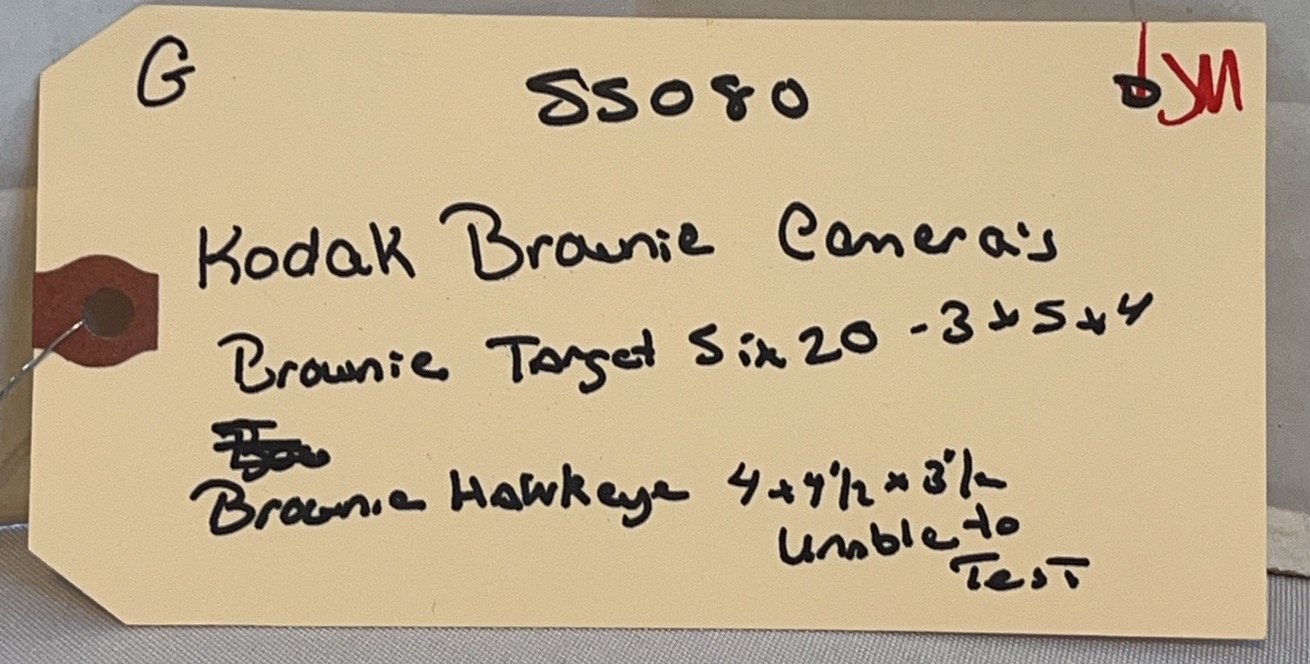 G
SS080
Kodak Brownie Camera's
Brownie Target Six 20 - 3 x 5 x 4
Brownie Hawkeye 4 x 4 1/2 x 3 1/2
Unable to
Test